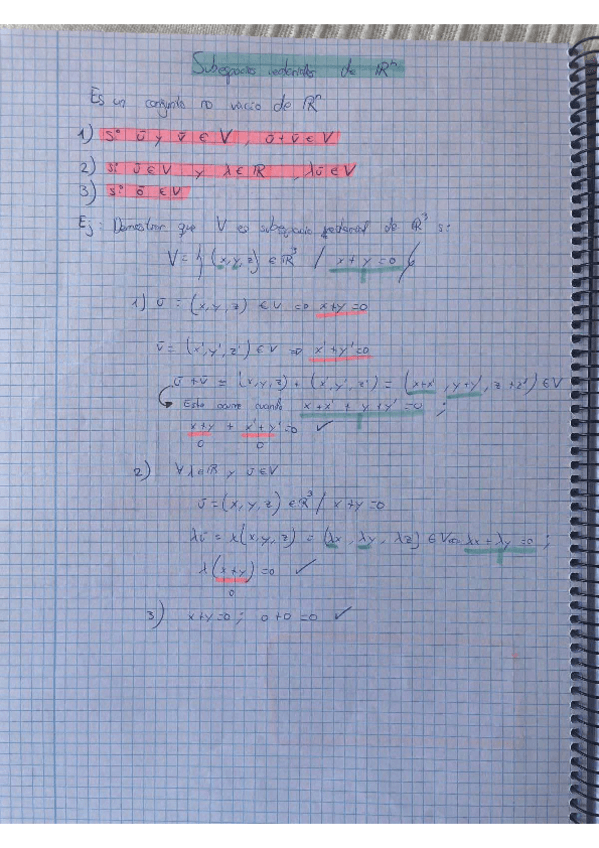 Subespacios vectoriales de ℝⁿ
Es un conjunto no vacío de ℝⁿ
1) Si ū y v̄ ∈ V , ū + v̄ ∈ V
2) si ū ∈ V y λ ∈ ℝ , λū ∈ V
3) si ō ∈ V
Ej: Demostrar que V es subespacio vectorial de ℝ³ si:
V = { (x, y, z) ∈ ℝ³ / x + y = 0 }
1) ū = (x, y, z) ∈ V => x+y = 0
v̄ = (x', y', z') ∈ V => x' + y' = 0
ū + v̄ = (x, y, z) + (x', y', z') = (x+x', y+y', z+z') ∈ V
Esto ocurre cuando x+x' + y+y' = 0 ;
x+y + x'+y' = 0 ✓
0 0
2) ∀ λ ∈ ℝ y ū ∈ V
ū = (x, y, z) ∈ ℝ³ / x+y = 0
λū = λ(x, y, z) = (λx, λy, λz) ∈ V => λx + λy = 0 ;
λ(x+y) = 0 ✓
0
3) x+y = 0 ; 0+0 = 0 ✓